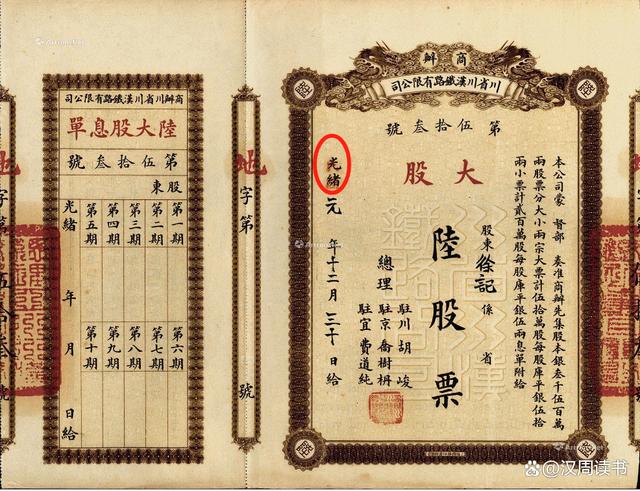 商辦
川省川漢鐵路有限公司
第伍拾叁號
大股
本公司蒙 督部 奏准商辦先集股本銀叁千伍百萬
兩股票分大小兩宗大票計伍拾萬股每股庫平銀伍拾
兩小票計貳百萬股每股庫平銀伍兩息單附給
股東徐記係 省
陸股票
總理
駐川胡峻
駐京喬樹枏
駐宜費道純
光緒元年十二月三十日給
地字第 號
商辦川省川漢鐵路有限公司
陸大股息單
第伍拾叁號
股東
第一期 第六期
第二期 第七期
第三期 第八期
第四期 第九期
第五期 第十期
光緒 年 月 日給
地字第
號
@汉周读书